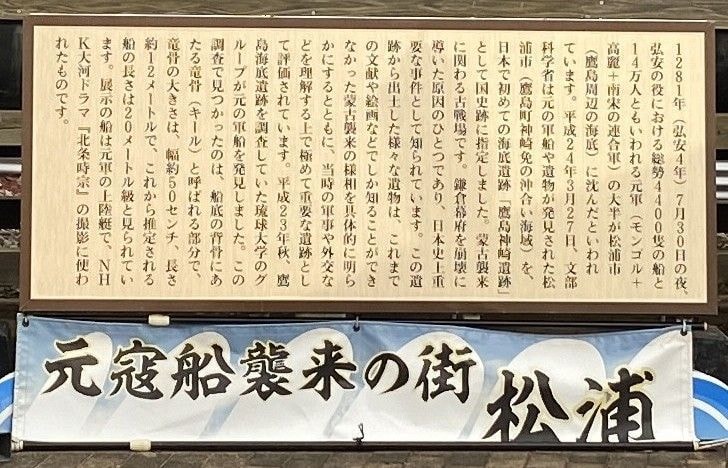 1281年(弘安4年)7月30日の夜、
弘安の役における総勢4400隻の船と
14万人ともいわれる元軍(モンゴル+
高麗+南宋の連合軍)の大半が松浦市
(鷹島周辺の海底)に沈んだといわれ
ています。平成24年3月27日、文部
科学省は元の軍船や遺物が発見された松
浦市(鷹島町神崎免の沖合い海域)を、
日本で初めての海底遺跡「鷹島神崎遺跡」
として国史跡に指定しました。蒙古襲来
に関わる古戦場です。鎌倉幕府を崩壊に
導いた原因のひとつであり、日本史上重
要な事件として知られています。この遺
跡から出土した様々な遺物は、これまで
の文献や絵画などでしか知ることができ
なかった蒙古襲来の様相を具体的に明ら
かにするとともに、当時の軍事や外交な
どを理解する上で極めて重要な遺跡とし
て評価されています。平成23年秋、鷹
島海底遺跡を調査していた琉球大学のグ
ループが元の軍船を発見しました。この
調査で見つかったのは、船底の背骨にあ
たる竜骨(キール)と呼ばれる部分で、
竜骨の大きさは、幅約50センチ、長さ
約12メートルで、これから推定される
船の長さは20メートル級と見られてい
ます。展示の船は元軍の上陸艇で、NH
K大河ドラマ『北条時宗』の撮影に使わ
れたものです。
元寇船襲来の街 松浦